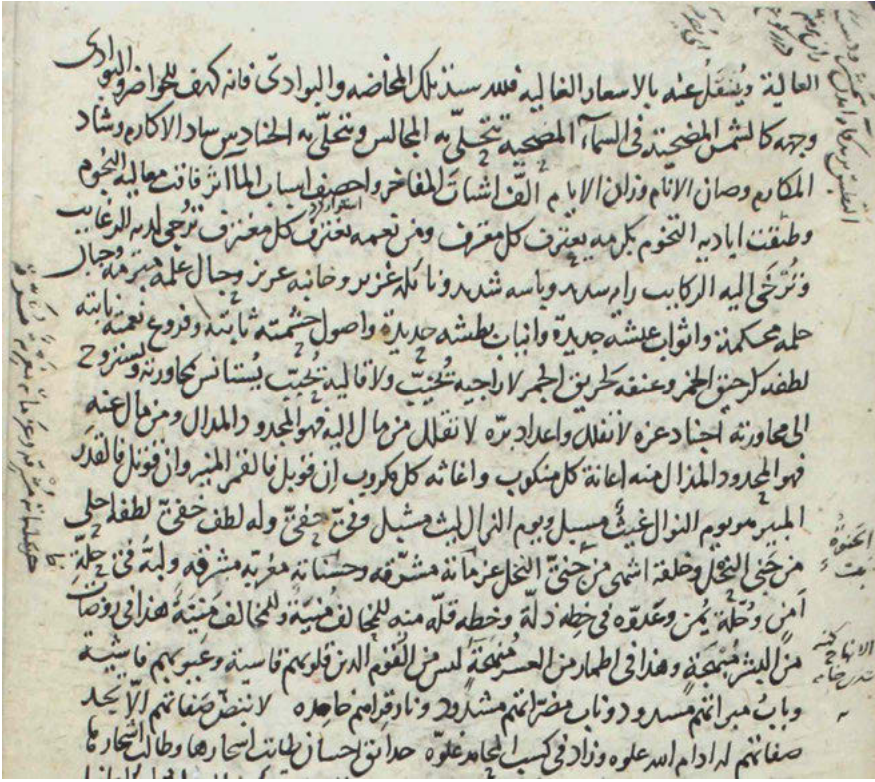 العالية ويُنتقَلُ عنه بالاسعار الغالية فلله سيد تلك المخاضه والبوادىّ فانه كهف للحواضر والبوادى
وجهه كالشمس المضحية فى السماء المصحية تتحلّى به المجالس وتتجلّى به الحنادس ساد الاكارم وشاد
المكارم وصان الانام وزان الايام الّف اشتات المفاخر واحصف اسباب المآثر فاقت معاليه النجوم
وطبقت اياديه التخوم بكرمه يعترف كل معترف ومن نعمه يغترف كل مغترف تزجى لديه الرغايب
وتزجى اليه الركايب رايه سديد وباسه شديد ونائله غزير وجانبه عزيز وجبال علمه مبرمة وجبال
حلمه محكمة واثواب عيشه جديدة وانياب بطشه حديدة واصول حشمته ثابتة وفروع نعمته نابتة
لطفه كرحيق الخمر وعنفه كحريق الجمر لا راجيه يُخيّب ولا قاليه يُحبّب يُستانس بمحاورته ويستروح
الى مجاورته اجناد عزه لا تفلل واعداد برّه لا تقلل من مال اليه فهو المجدود المدال ومن مال عنه
فهو المحدود المذال منه اعانة كل منكوب واغاثه كل مكروب ان قوبل فالقمر المنير وان قوتل فالقدر
المبير هو يوم النوال غيثٌ مسبل ويوم النزال ليث مشبل وفىّ حفىّ وله لطف خفىّ لطفه احلى
من جَنى النحل وخلقه اشهى من جنىّ النخل عزماته مشرّقه وحسناته مغربة مشرقه وليّه فى حلّة
امن وحُلّة يُمن وعدوّه فى خطه ذلّة وخطه قلّه منه للمخالف مُنيَةٌ وللمخالف مَنيّةٌ هذا فى روضات
من اليسر مُبهَجة وهذا فى اطمار من العسر مُنهَجَة ليس من القوم الذين قلوبهم قاسية وعيوبهم فاشية
وباب مبراتهم مسدود وناب مضراتهم مشدود ونار قراهم خامده لا تبض صفاتهم الا بحد
صفاتهم ادام الله علوه وزاد فى كسب المحامد غلوّه حدائق احسان طابت اسحارها وطالت اشجارها